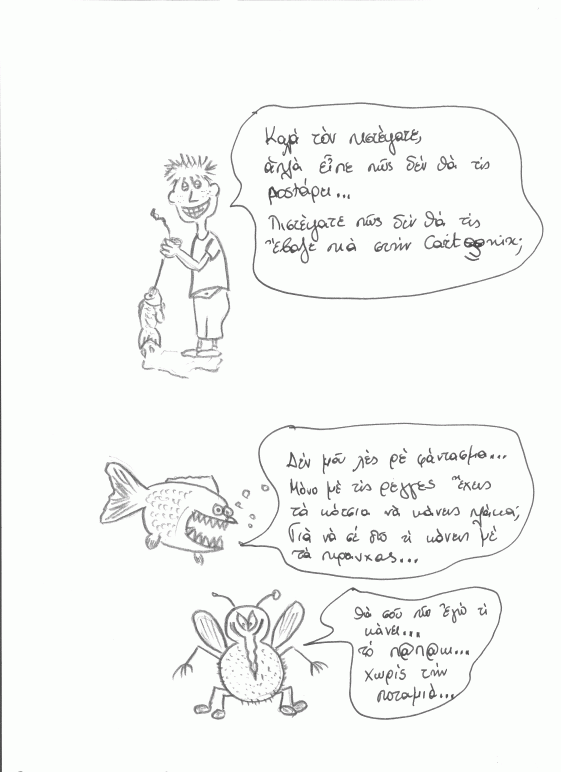 Καλά τὸν πιστέψατε,
ἀλλὰ εἶπε πῶς δέν θὰ τὶς
ποστάρει...
Πιστέψατε πῶς δέν θὰ τὶς
ἔβαζε πιὰ στὴν
Δέν μοῦ λὲς ρὲ φάντασμα...
Μόνο μὲ τὶς ρέγγες ἔχεις
τὰ κότσια νὰ κάνεις πλάκα;
Γιὰ νὰ σέ δῶ τί κάνεις μὲ
τὰ πιρανχας...
Θὰ σοῦ πῶ ἐγώ τί
κάνει...
τό π@π@κι...
χωρίς τὴν
ποταμιὰ...